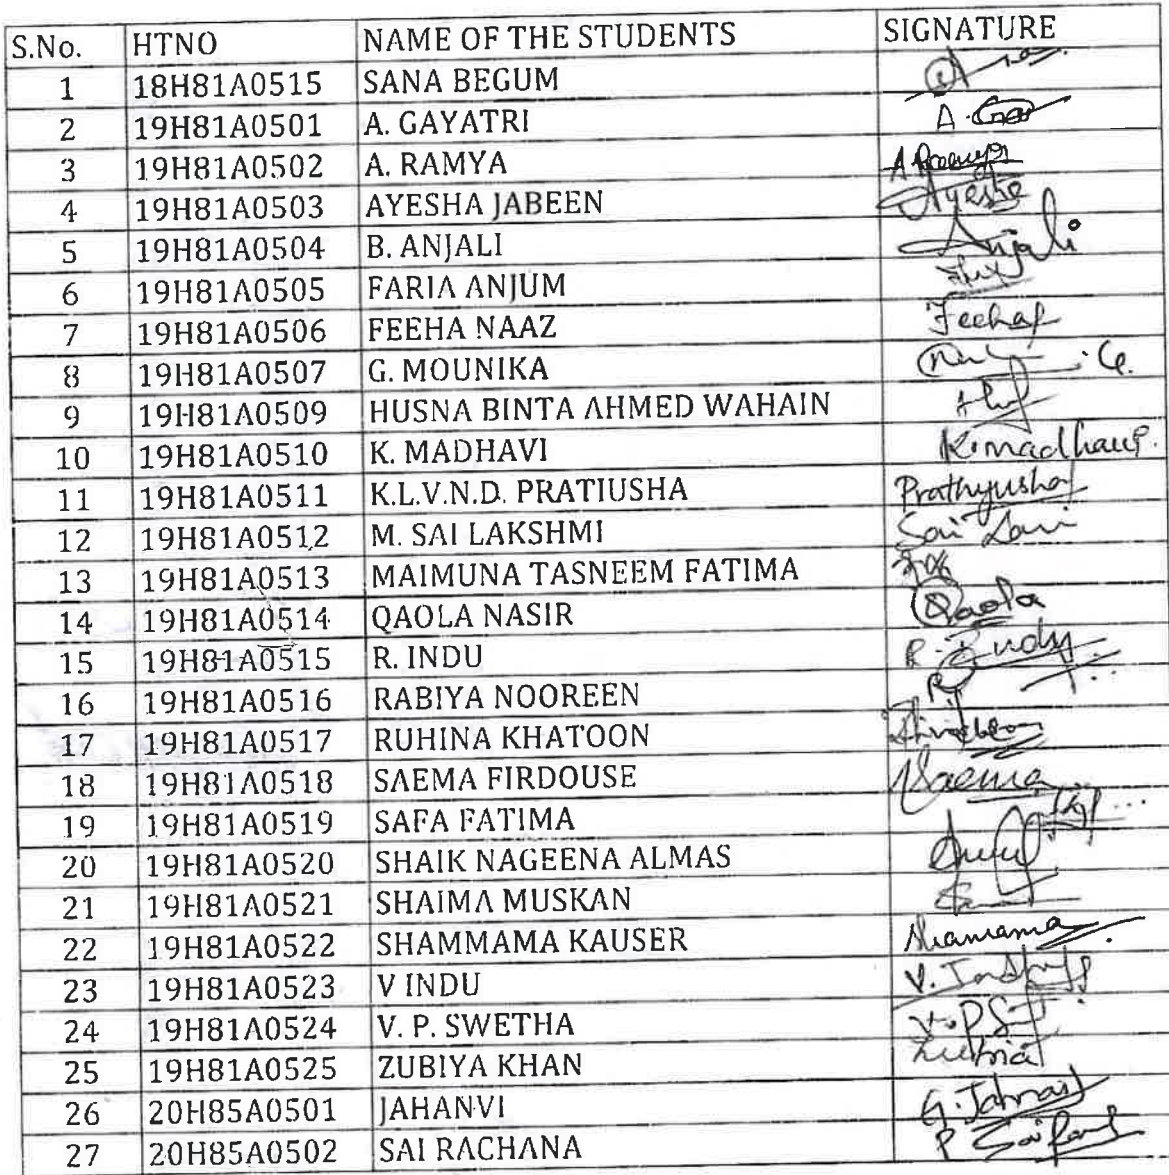 S.No. HTNO NAME OF THE STUDENTS SIGNATURE
1 18H81A0515 SANA BEGUM
2 19H81A0501 A. GAYATRI A.
3 19H81A0502 A. RAMYA A Ramya
4 19H81A0503 AYESHA JABEEN Ayesha
5 19H81A0504 B. ANJALI Anjali
6 19H81A0505 FARIA ANJUM
7 19H81A0506 FEEHA NAAZ Feeha
8 19H81A0507 G. MOUNIKA
9 19H81A0509 HUSNA BINTA AHMED WAHAIN
10 19H81A0510 K. MADHAVI K. madhavi
11 19H81A0511 K.L.V.N.D. PRATIUSHA Prathyusha
12 19H81A0512 M. SAI LAKSHMI Sai
13 19H81A0513 MAIMUNA TASNEEM FATIMA
14 19H81A0514 QAOLA NASIR Qaola
15 19H81A0515 R. INDU R. Indu
16 19H81A0516 RABIYA NOOREEN
17 19H81A0517 RUHINA KHATOON
18 19H81A0518 SAEMA FIRDOUSE Saema
19 19H81A0519 SAFA FATIMA
20 19H81A0520 SHAIK NAGEENA ALMAS
21 19H81A0521 SHAIMA MUSKAN
22 19H81A0522 SHAMMAMA KAUSER Shamama
23 19H81A0523 V INDU V. Indu
24 19H81A0524 V. P. SWETHA V. P. S
25 19H81A0525 ZUBIYA KHAN Zubia
26 20H85A0501 JAHANVI G. Jahnavi
27 20H85A0502 SAI RACHANA P Sai